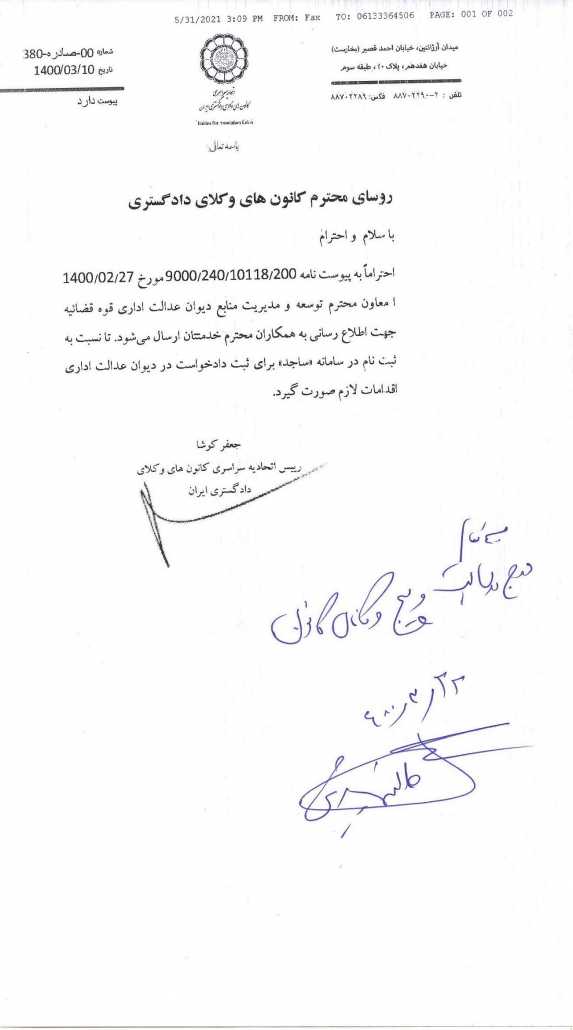 5/31/2021 3:09 PM FROM: Fax TO: 06133364506 PAGE: 001 OF 002
شماره 00-صادره-380
تاریخ 1400/03/10
پیوست دارد
میدان آرژانتین، خیابان احمد قصیر (بخارست)
خیابان هفدهم، پلاک ۲۰، طبقه سوم
تلفن : ۲-۸۸۷۰۲۲۹۰ فکس: ۸۸۷۰۲۲۸۹
کانون های وکلای دادگستری ایران
باسمه تعالی
روسای محترم کانون های وکلای دادگستری
با سلام و احترام
احتراماً به پیوست نامه 9000/240/10118/200 مورخ 1400/02/27
ا معاون محترم توسعه و مدیریت منابع دیوان عدالت اداری قوه قضائیه
جهت اطلاع رسانی به همکاران محترم خدمتتان ارسال می‌شود. تا نسبت به
ثبت نام در سامانه «ساجد» برای ثبت دادخواست در دیوان عدالت اداری
اقدامات لازم صورت گیرد.
جعفر کوشا
رییس اتحادیه سراسری کانون های وکلای
دادگستری ایران